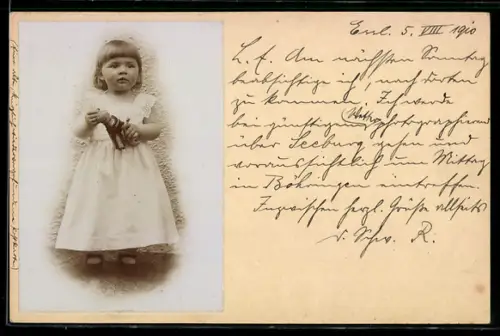 Enl. 5. VIII 1910
L. f. Am nächsten Sonntag
beabsichtige ich, nach dorten
zu kommen. Ich werde
bei günstigem Wetter photographierend
über Seeburg gehen und
voraussichtlich um Mittag
in Böhringen eintreffen.
Inzwischen herzl. Grüße allseits
v. Schw. R.